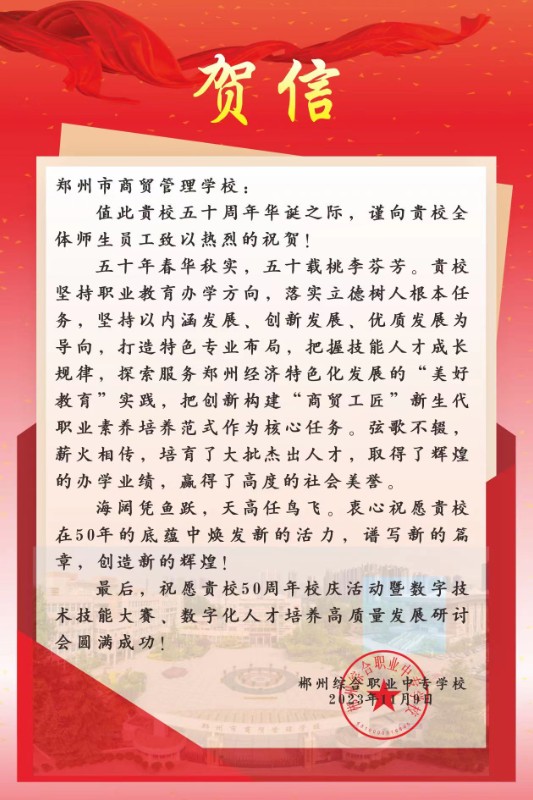 贺信
郑州市商贸管理学校：
值此贵校五十周年华诞之际，谨向贵校全
体师生员工致以热烈的祝贺！
五十年春华秋实，五十载桃李芬芳。贵校
坚持职业教育办学方向，落实立德树人根本任
务，坚持以内涵发展、创新发展、优质发展为
导向，打造特色专业布局，把握技能人才成长
规律，探索服务郑州经济特色化发展的“美好
教育”实践，把创新构建“商贸工匠”新生代
职业素养培养范式作为核心任务。弦歌不辍，
薪火相传，培育了大批杰出人才，取得了辉煌
的办学业绩，赢得了高度的社会美誉。
海阔凭鱼跃，天高任鸟飞。衷心祝愿贵校
在50年的底蕴中焕发新的活力，谱写新的篇
章，创造新的辉煌！
最后，祝愿贵校50周年校庆活动暨数字技
术技能大赛、数字化人才培养高质量发展研讨
会圆满成功！
郴州综合职业中专学校
2023年11月9日
郴州综合职业中专学校
郑州市商贸管理学校